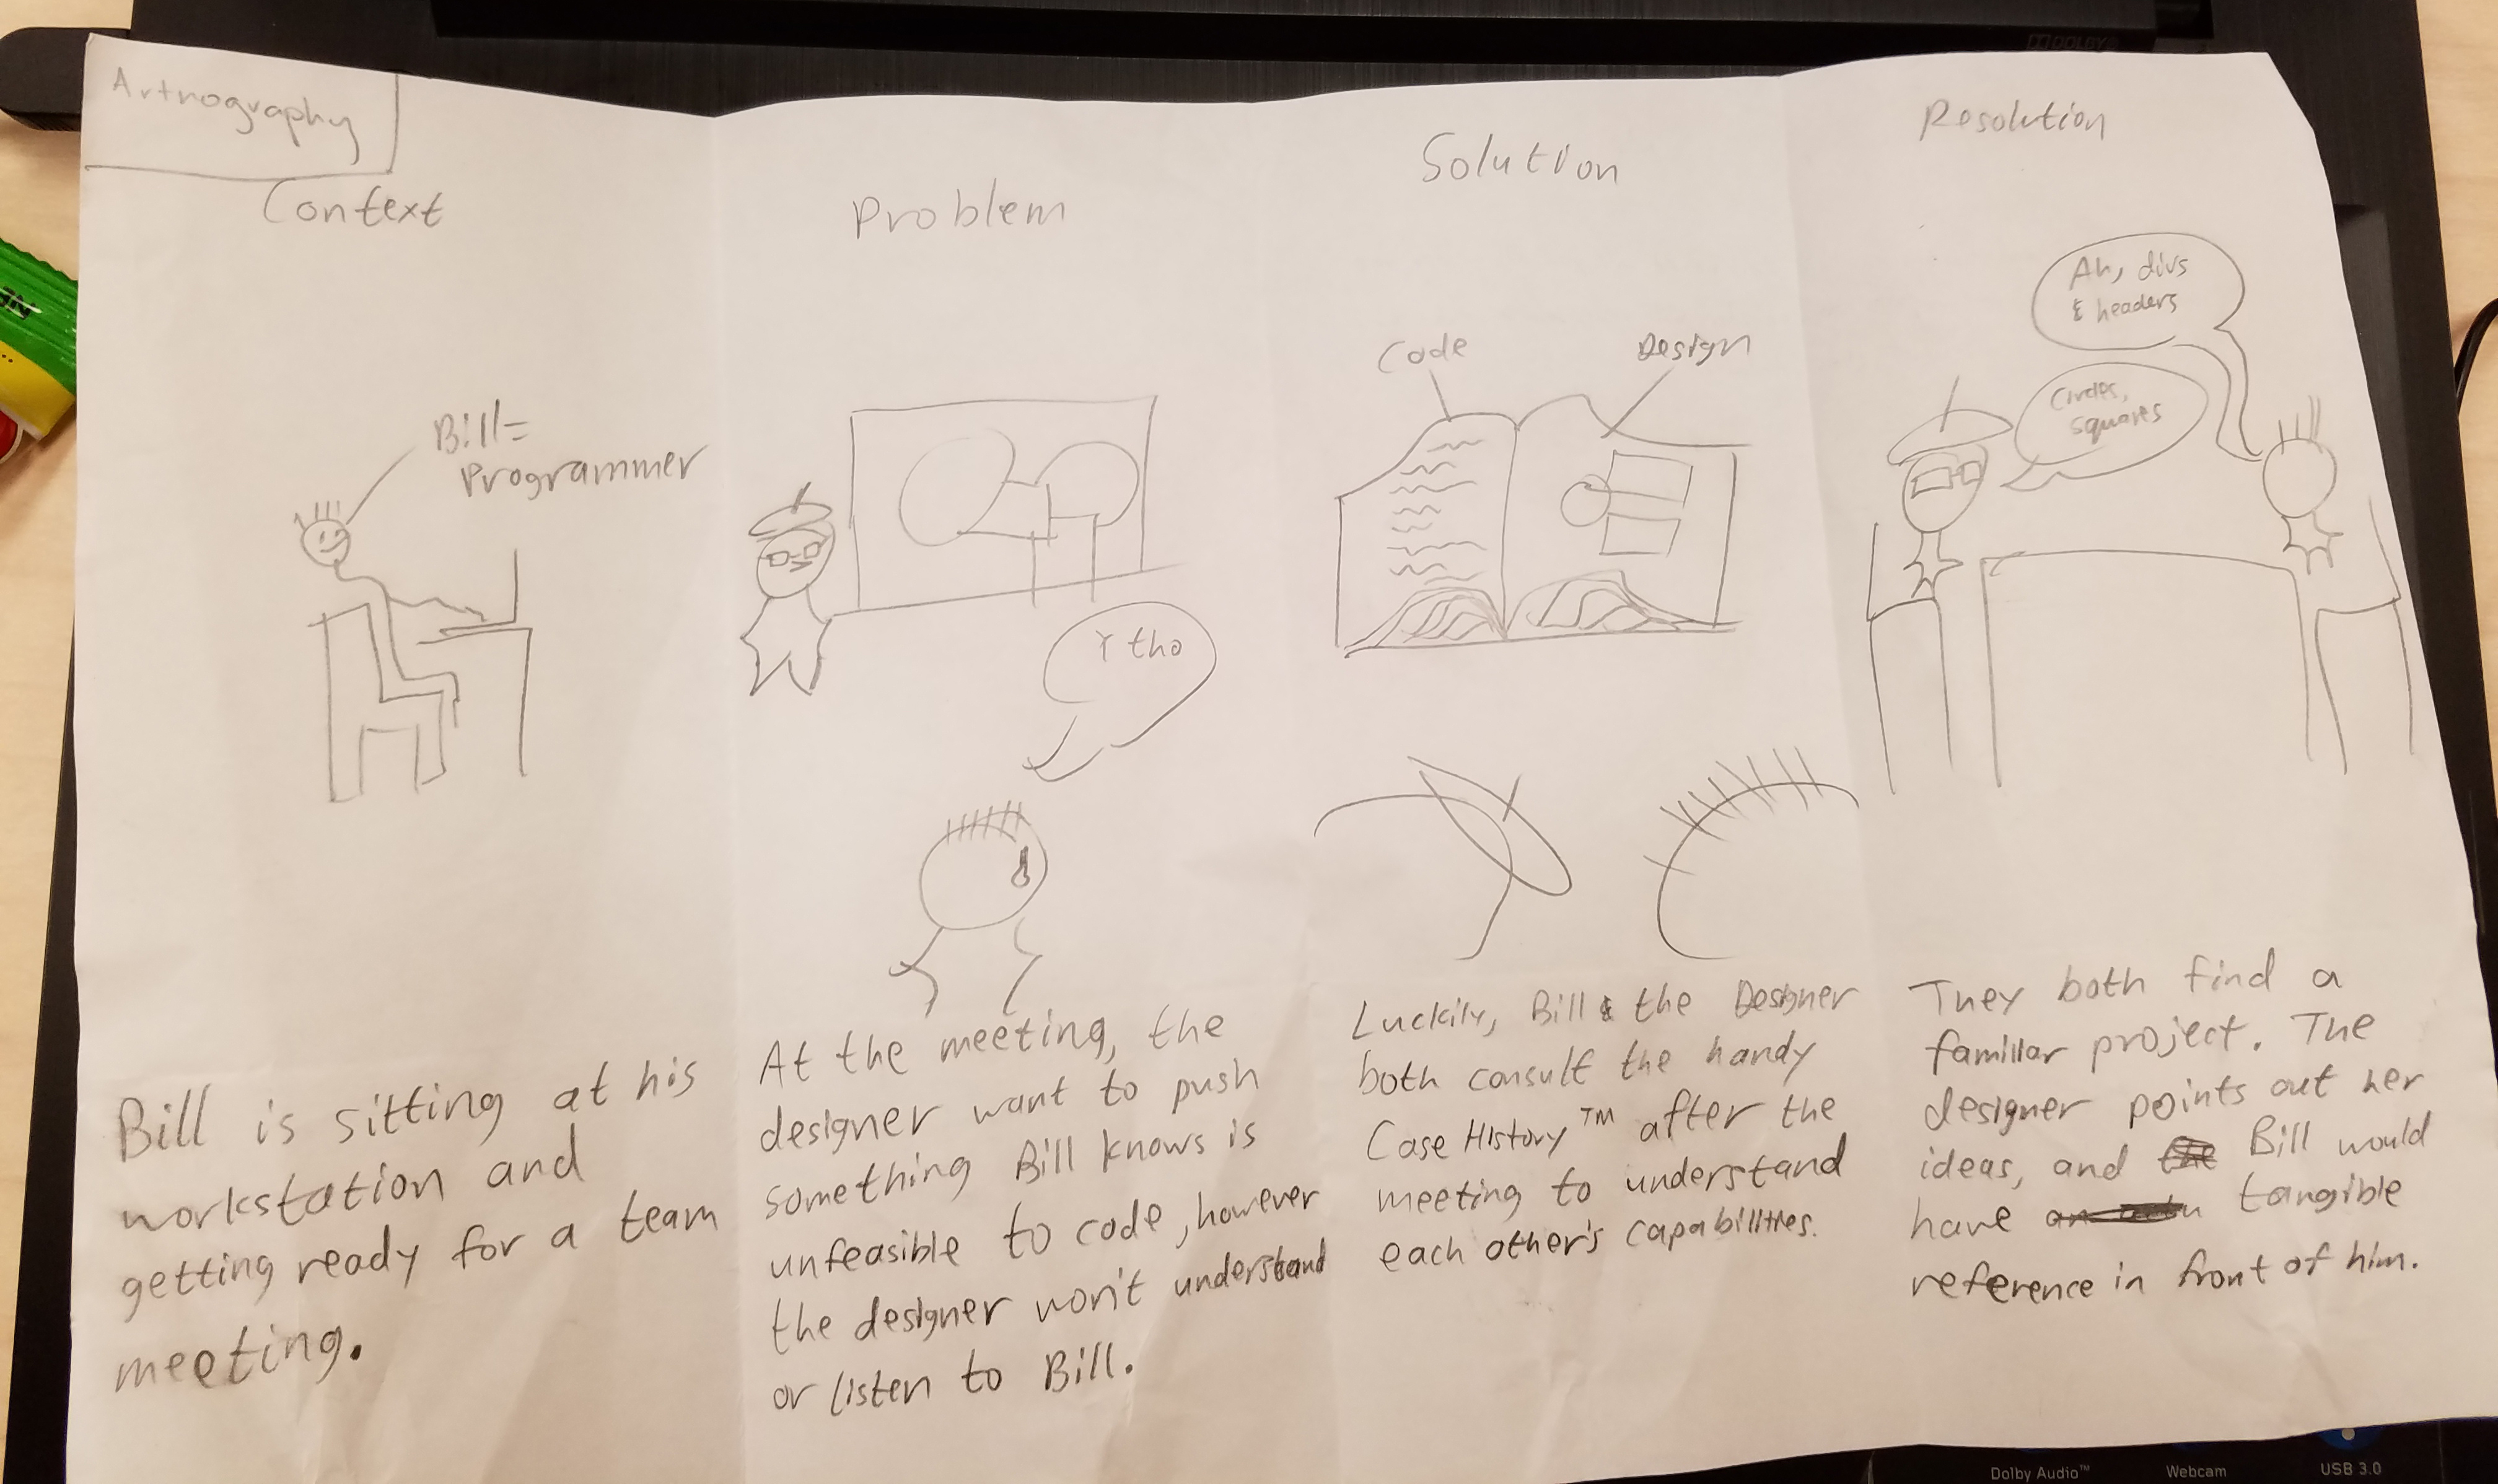 Artnography
Context
Bill=
Programmer
Bill is sitting at his
workstation and
getting ready for a team
meeting.
Problem
Y tho
At the meeting, the
designer want to push
something Bill knows is
unfeasible to code, however
the designer won't understand
or listen to Bill.
Solution
Code
Design
Luckily, Bill & the Designer
both consult the handy
Case History™ after the
meeting to understand
each other's capabilities.
Resolution
Ah, divs
& headers
Circles,
squares
They both find a
familiar project. The
designer points out her
ideas, and Bill would
have tangible
reference in front of him.
DOLBY
Dolby Audio™
Webcam
USB 3.0